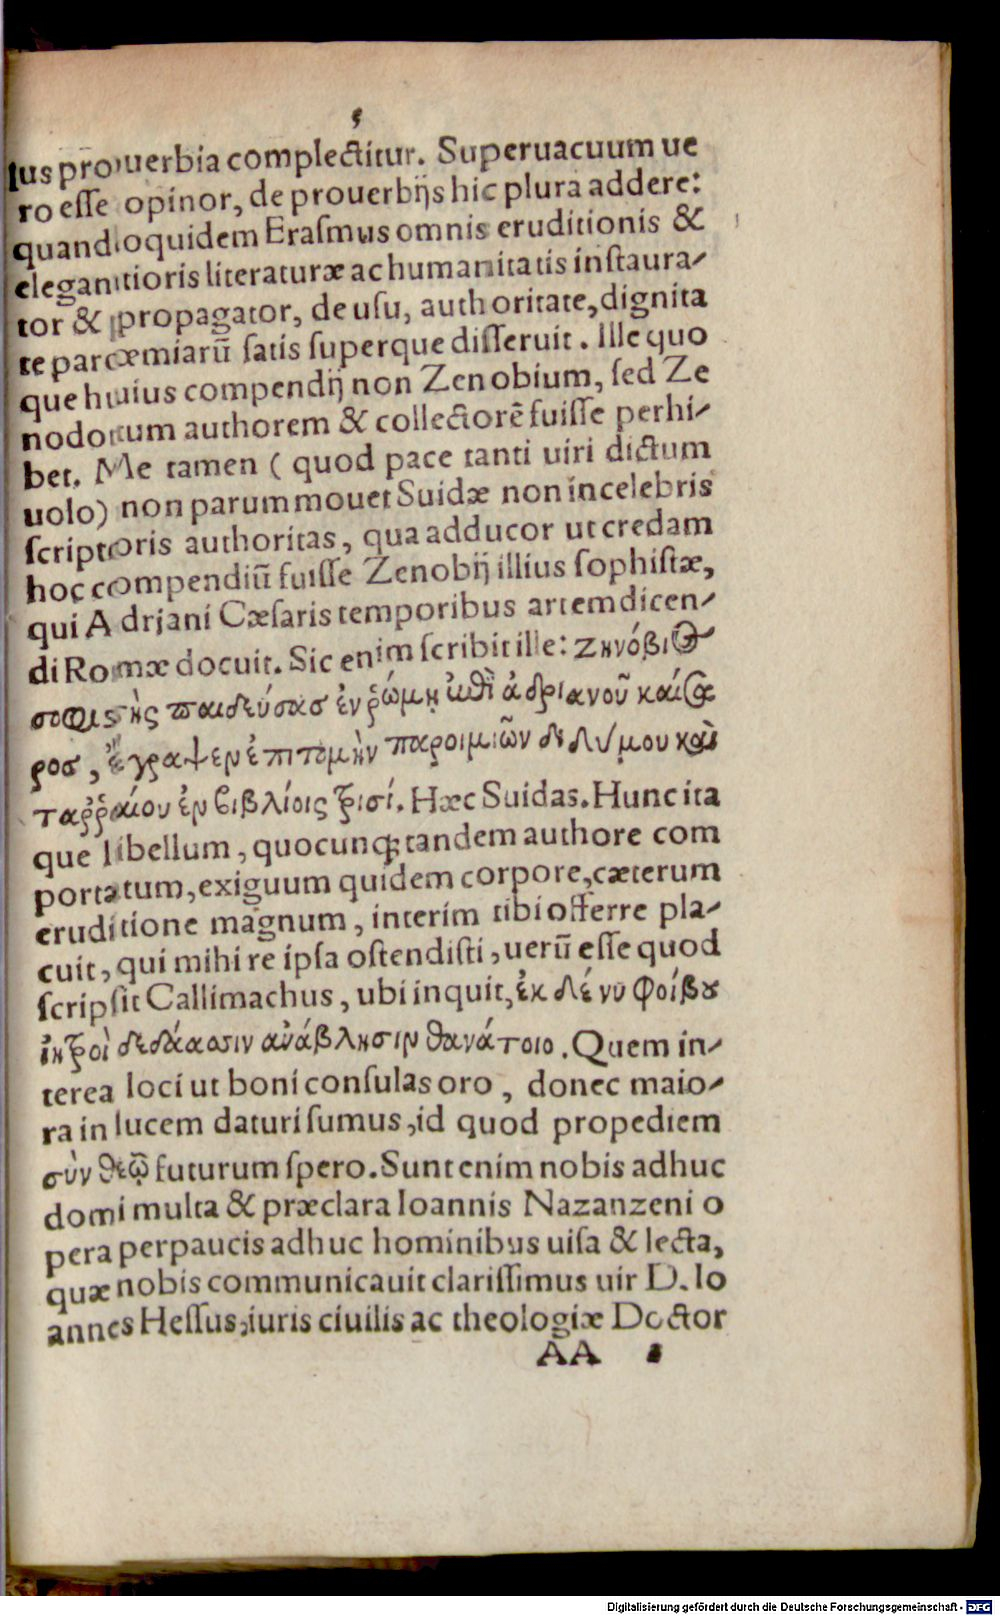 5
ius prouerbia complectitur. Superuacuum ue
ro esse opinor, de prouerbijs hic plura addere:
quandoquidem Erasmus omnis eruditionis &
elegantioris literaturæ ac humanitatis instaura-
tor & propagator, de usu, authoritate, dignita
te parœmiarũ satis superque disseruit. Ille quo
que huius compendij non Zenobium, sed Ze
nodotum authorem & collectorẽ fuisse perhi-
bet. Me tamen ( quod pace tanti uiri dictum
uolo) non parum mouet Suidæ non incelebris
scriptoris authoritas, qua adducor ut credam
hoc compendiũ fuisse Zenobij illius sophistæ,
qui Adriani Cæsaris temporibus artem dicen-
di Romæ docuit. Sic enim scribit ille: Ζηνόβιος
σοφιστὴς παιδεύσας ἐν ῥώμῃ ἐπὶ ἀδριανοῦ καίσα
ρος, ἔγραψεν ἐπιτομὴν παροιμιῶν διδύμου καὶ
ταῤῥαίου ἐν βιβλίοις τρισί. Hæc Suidas. Hunc ita
que libellum, quocunq; tandem authore com
portatum, exiguum quidem corpore, cæterum
eruditione magnum, interim tibi offerre pla-
cuit, qui mihi re ipsa ostendisti, uerũ esse quod
scripsit Callimachus, ubi inquit, ἐκ δέ νυ φοίβου
ἰητροὶ δεδάασιν ἀνάβλησιν θανάτοιο. Quem in-
terea loci ut boni consulas oro, donec maio-
ra in lucem daturi sumus, id quod propediem
σὺν θεῷ futurum spero. Sunt enim nobis adhuc
domi multa & præclara Ioannis Nazanzeni o
pera perpaucis adhuc hominibus uisa & lecta,
quæ nobis communicauit clarissimus uir D. Io
annes Hessus, iuris ciuilis ac theologiæ Doctor
AA
Digitalisierung gefördert durch die Deutsche Forschungsgemeinschaft - DFG